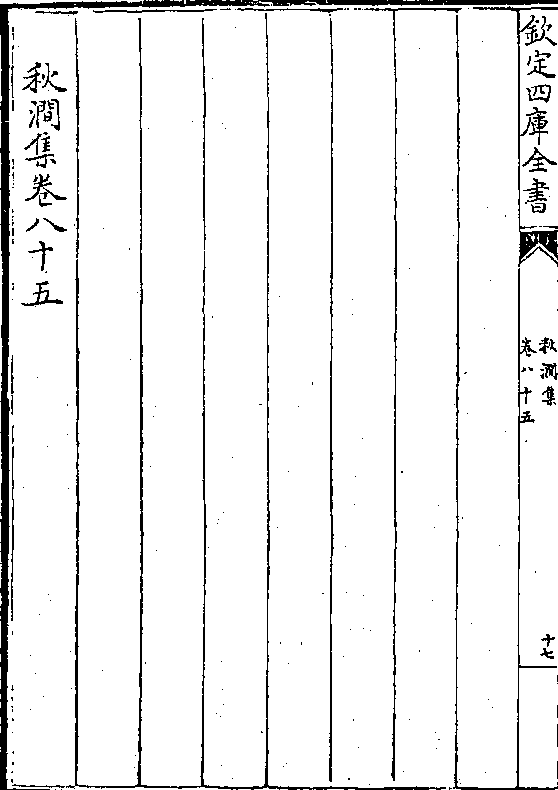 欽定四庫全書
秋澗集
卷八十五
十七
秋澗集卷八十五